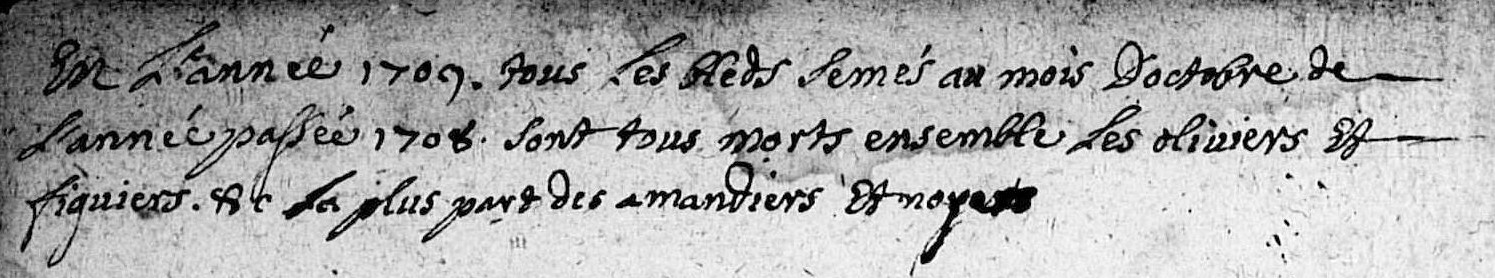 En L'année 1709. tous les bleds semés au mois D'octobre de
L'année passée 1708. sont tous morts ensemble les oliviers Et
figuiers. &c La plus part des amandiers Et noyers